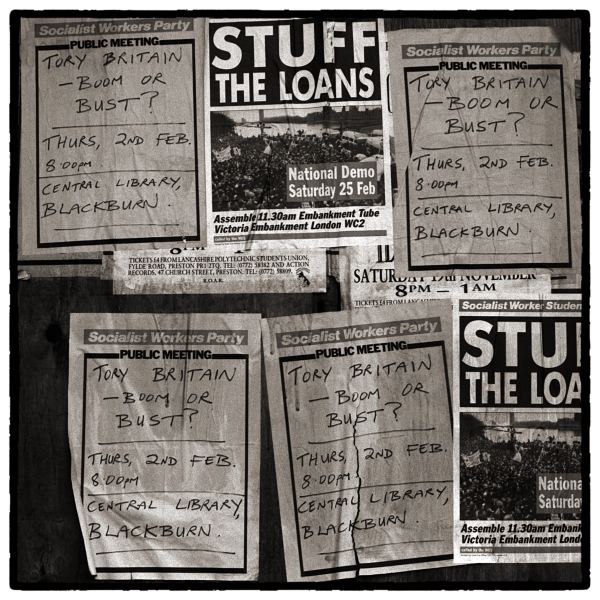 Socialist Workers Party
PUBLIC MEETING
TORY BRITAIN
– BOOM OR
BUST?
THURS, 2ND FEB.
8.00pm
CENTRAL LIBRARY,
BLACKBURN.
STUFF
THE LOANS
National Demo
Saturday 25 Feb
Assemble 11.30am Embankment Tube
Victoria Embankment London WC2
called by the NUS
Socialist Workers Party
PUBLIC MEETING
TORY BRITAIN
– BOOM OR
BUST?
THURS, 2ND FEB.
8.00pm
CENTRAL LIBRARY,
BLACKBURN.
8PM
TICKETS £4 FROM LANCASHIRE POLYTECHNIC STUDENTS UNION,
FYLDE ROAD, PRESTON PR1 2TQ. TEL: (0772) 58382 AND ACTION
RECORDS, 47 CHURCH STREET, PRESTON. TEL: (0772) 58809.
SATURDAY NOVEMBER
8PM – 1AM
TICKETS £4 FROM
Socialist Workers Party
PUBLIC MEETING
TORY BRITAIN
– BOOM OR
BUST?
THURS, 2ND FEB.
8.00pm
CENTRAL LIBRARY,
BLACKBURN.
Socialist Workers Party
PUBLIC MEETING
TORY BRITAIN
– BOOM OR
BUST?
THURS, 2ND FEB.
8.00pm
CENTRAL LIBRARY,
BLACKBURN.
Socialist Worker Studen
STU
THE LOA
Nationa
Saturda
Assemble 11.30am Emban
Victoria Embankment Lond
called by the NUS